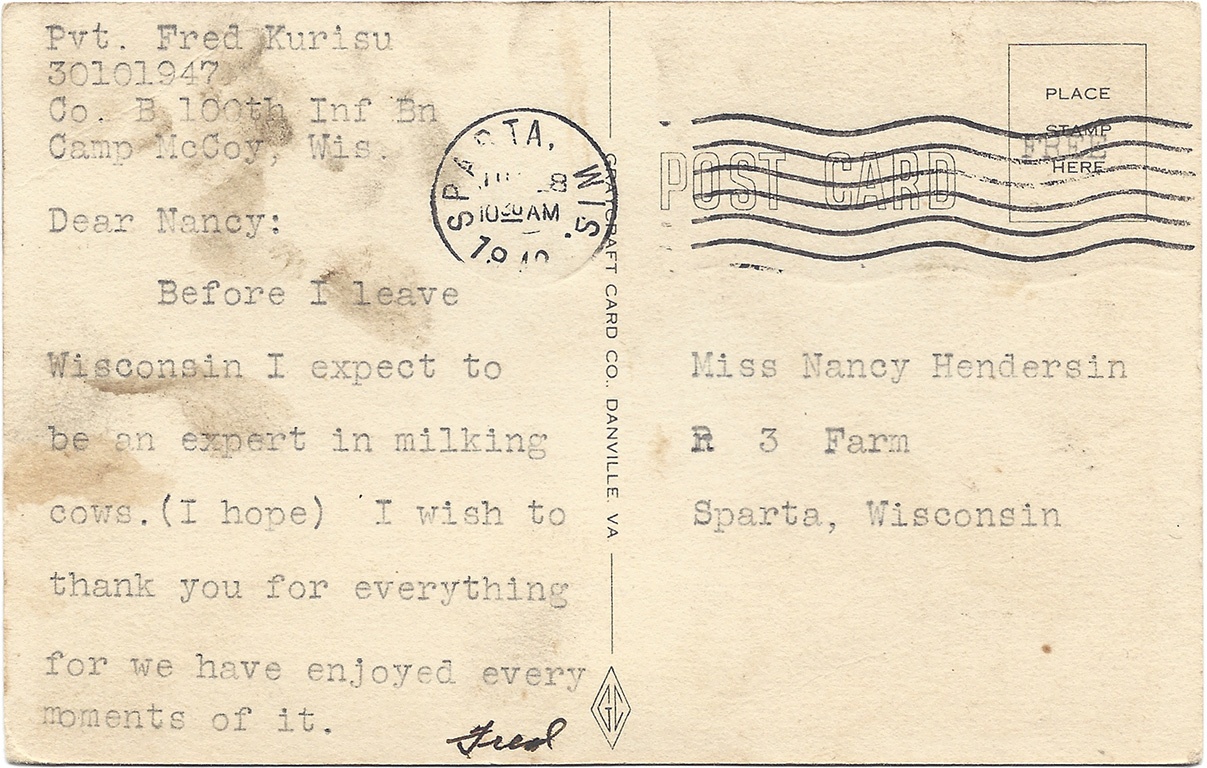 Pvt. Fred Kurisu
30101947
Co. B 100th Inf Bn
Camp McCoy, Wis.
Dear Nancy:
Before I leave
Wisconsin I expect to
be an expert in milking
cows.(I hope) I wish to
thank you for everything
for we have enjoyed every
moments of it.
Fred
SPARTA, WIS.
10 30 AM
GRAYCRAFT CARD CO., DANVILLE, VA
POST CARD
PLACE
STAMP
HERE
FREE
Miss Nancy Hendersin
R 3 Farm
Sparta, Wisconsin